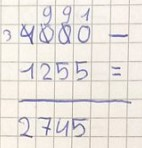 9 9 1
3 4000 −
1255 =
2745